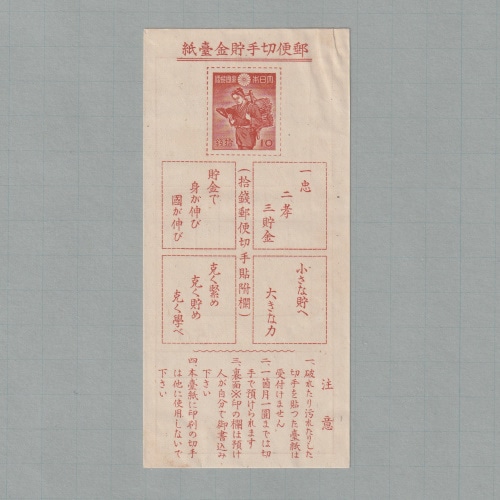 郵便切手貯金臺紙
大日本帝國郵便
拾錢
10
一忠
二孝
三貯金
貯金で
身が伸び
國が伸び
(拾錢郵便切手貼附欄)
小さな貯へ
大きな力
克く緊め
克く貯め
克く學べ
注意
一、破れたり汚れたりした
切手を貼つた臺紙は
受付けません
二、一箇月一圓までは切
手で預けられます
三、裏面※印の欄は預け
人が自分で御書込み
下さい
四、本臺紙に印刷の切手
は他に使用しないで
下さい